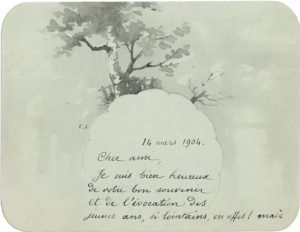 F.J.
14 mars 1904.
Cher ami,
Je suis bien heureux
de votre bon souvenir
et de l'évocation des
jeunes ans, si lointains, en effet ! mais